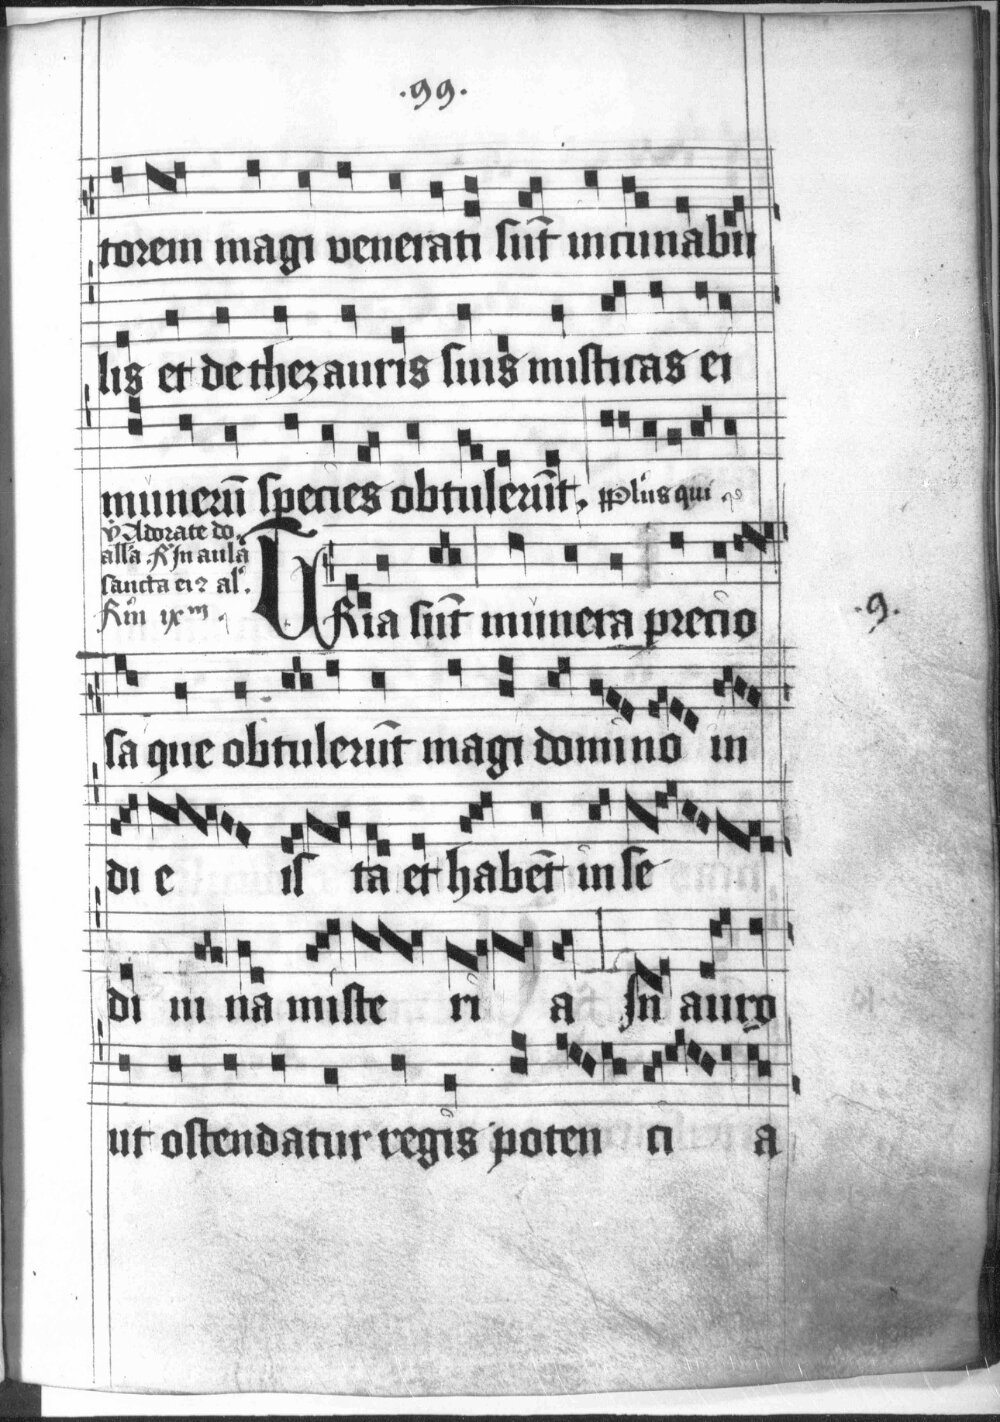 .99.
torem magi venerati sūt in cunabu
lis et de thezauris suis misticas ei
munerū species obtulerūt. ps plus qui
v Adorate do.
alla . R In aula
sancta ei⁊ al.
Rm ix m .
Tria sūt munera precio
sa que obtulerūt magi domino in
di e is ta et habēt in se
di ui na miste ri a In auro
ut ostendatur regis poten ci a
.9.